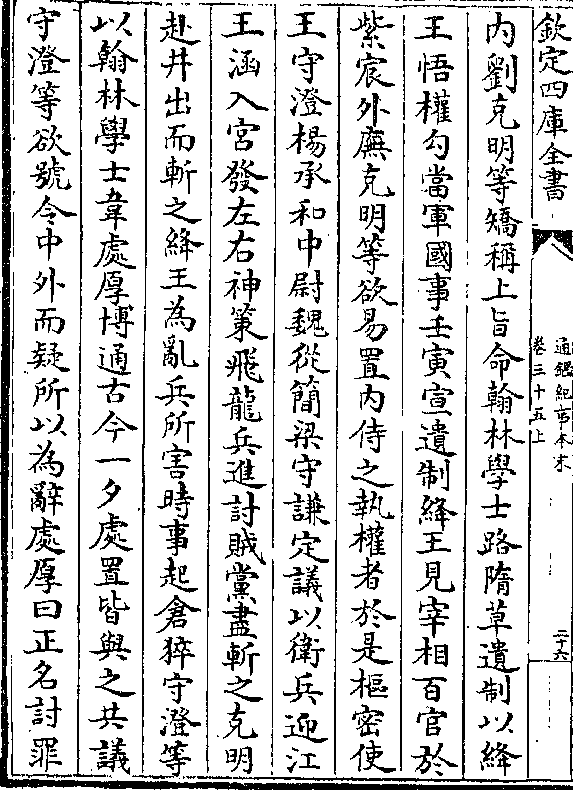 欽定四庫全書
通鑑紀事本末
卷三十五上
二十六
内劉克明等矯稱上旨命翰林學士路隋草遺制以絳
王悟權勾當軍國事壬寅宣遺制絳王見宰相百官於
紫宸外廡克明等欲易置内侍之執權者於是樞密使
王守澄楊承和中尉魏從簡梁守謙定議以衛兵迎江
王涵入宮發左右神策飛龍兵進討賊黨盡斬之克明
赴井出而斬之絳王為亂兵所害時事起倉猝守澄等
以翰林學士韋處厚博通古今一夕處置皆與之共議
守澄等欲號令中外而疑所以為辭處厚曰正名討罪